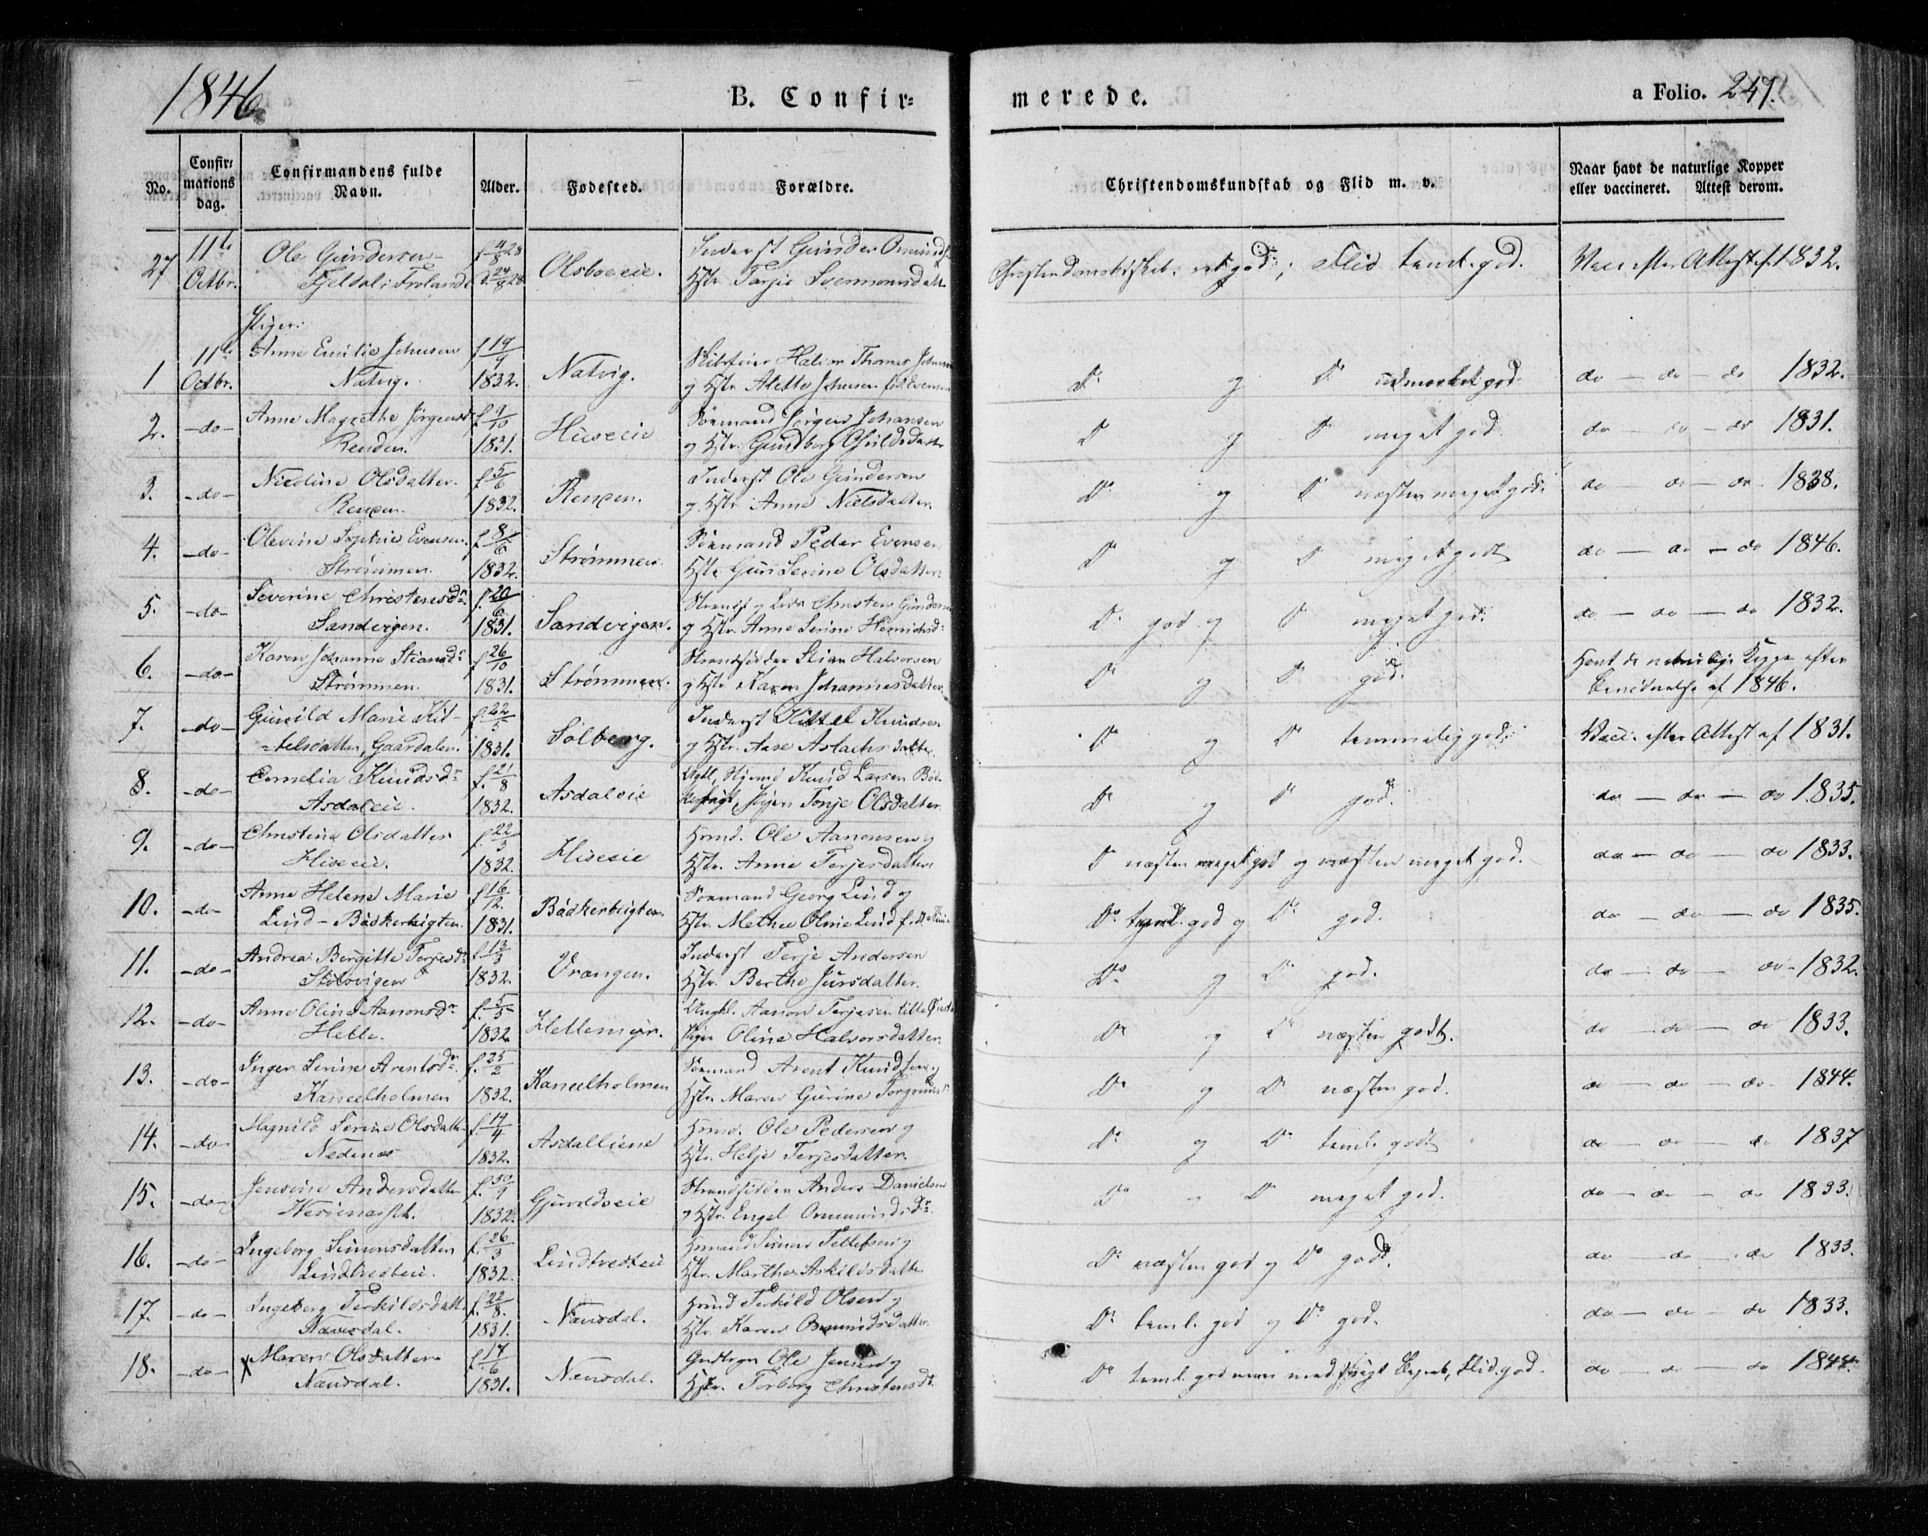 1846.
B. Confir=
merede.
a Folio. 247.
No.
Confir=
mations
dag.
Confirmandens fulde
Navn.
Alder.
Fødested.
Forældre.
Christendomskundskab og Flid m. v.
Naar havt de naturlige Kopper
eller vaccineret. Attest derom.
27 11te Octbr. Ole Gundersen
Fjeldal i Froland Olsboeeie. Inderst Gunder
Hstr Torjer
god; Flid taml. god. Vacc. efter Attest af 1832.
Piger:
1 11te Octbr. Anne Emilie Johnsen
Natvig. f. 19/9 1832. Natvig. Halvor Thomas
og Hstr. Alette Johnsen
Do og Do udmærket god. do — do — do 1832.
2. -do- Anne Margrethe Jørgensd.
Renden. f. 9/10 1831. Hiseeie Sømand Jørgen Johansen
og Hstr. Gundborg
Do og Do meget god. do — do — do 1831.
3. -do- Nicoline Olsdatter.
f. 5/6 1832. Inderst Ole Gundersen
og Hstr Anne Nielsdatter.
Do og Do næsten meget god. do — do — do 1838.
4. -do- Olevine Sophie Evensen.
Strømmen. f. 8/6 1832. Strømmen. Sømand Peder Evensen
Hstr Gun Serine Olsdatter.
Do og Do meget godt do — do — do 1846.
5. -do- Severine Christensdr.
Sandvigen. 1831. Sandvigen. Christen Gundersen
og Hstr. Anne Serine
Do god og Do meget god. do — do — do 1832.
6. -do- Karen Johanne Stiansdr
Strømmen. f. 26/10 1831. Strømmen. Strandsidder Stian Halvorsen
og Hstr. Karen Johannesdatter
Do og Do god. Havt de naturlige Kopper efter
af 1846.
7. -do- Gunild Marie Kit-
telsdatter, Gaardalen. f. 22/5 1831. Solberg. Inderst Kittel Knudsen
og Hstr. Aase Aslachsdatter
Do og Do temmelig god. Vacc. efter Attest af 1831.
8. -do- Cornelia Knudsdr
Asdaleie. f. 21/8 1832. Asdaleie Knud Larsen
Pigen Tonje Olsdatter.
Do og Do god. do — do — do 1835.
9. -do- Christine Olsdatter
Hiseeie. f. 22/3 1832. Hiseeie Hmd. Ole Aanonsen og
Hstr. Anne Terjesdatter.
Do næsten meget god og næsten meget god. do — do — do 1833.
10. -do- Anne Helene Marie
Lind - Bødkerbugten. f. 16/12. 1831. Bødkerbugten. Sømand Georg Lind og
Hstr. Methee Oline Lind
Do taml. god og Do god. do — do — do 1835.
11. -do- Andrea Bergitte Terjesdr
Stølsvigen f. 13/3 1832. Vrangen. Inderst Terje Andersen
Hstr. Berthe Jursdatter.
Do og Do god. do — do — do 1832.
12. -do- Anne Oline Aanonsdr
Helle. f. 5/5 1832. Hellemyr. Ungkl. Aanon Terjesen
Pigen Oline Halvorsdatter.
Do og Do næsten godt. do — do — do 1833.
13. -do- Inger Serine Arentsdr.
Kaneelholmen f. 25/2 1832. Kaneelholmen Sømand Arent Knudsen og
Hstr. Maren Gurine
Do og Do næsten god. do — do — do 1844.
14. -do- Magnild Serine Olsdatter
Nedenæs f. 19/4 1832. Asdalliene Hmd. Ole Pedersen og
Hstr. Helje Terjesdatter.
Do og Do taml. godt do — do — do 1837
15. -do- Jensine Andersdatter
1832. Gjuroldseie Strandsidder Anders Danielsen
og Hstr. Engel Ommundsdr.
Do og Do meget god. do — do — do 1833.
16. -do- Ingeborg Simonsdatter
Lindtvedteie. f. 26/3 1832. Lindtvedteie Hmand Simon Tellefsen og
Hstr. Marthe Askildsdatter
Do næsten god og Do godt. do — do — do 1833.
17. -do- Ingeborg Terkildsdatter
Næversdal. f. 22/8. 1831. Næversdal. Hmd Terkild Olsen og
Hstr. Karen Osmundsdatter
Do taml. god og Do god. do — do — do 1833.
18. -do- Maren Olsdatter
Næversdal. f. 17/6 1831. Næversdal. Ole Jensen og
Hstr. Torborg Christensdr.
Do taml. god men med svagt Begreb, Flid god. do — do — do 1844.